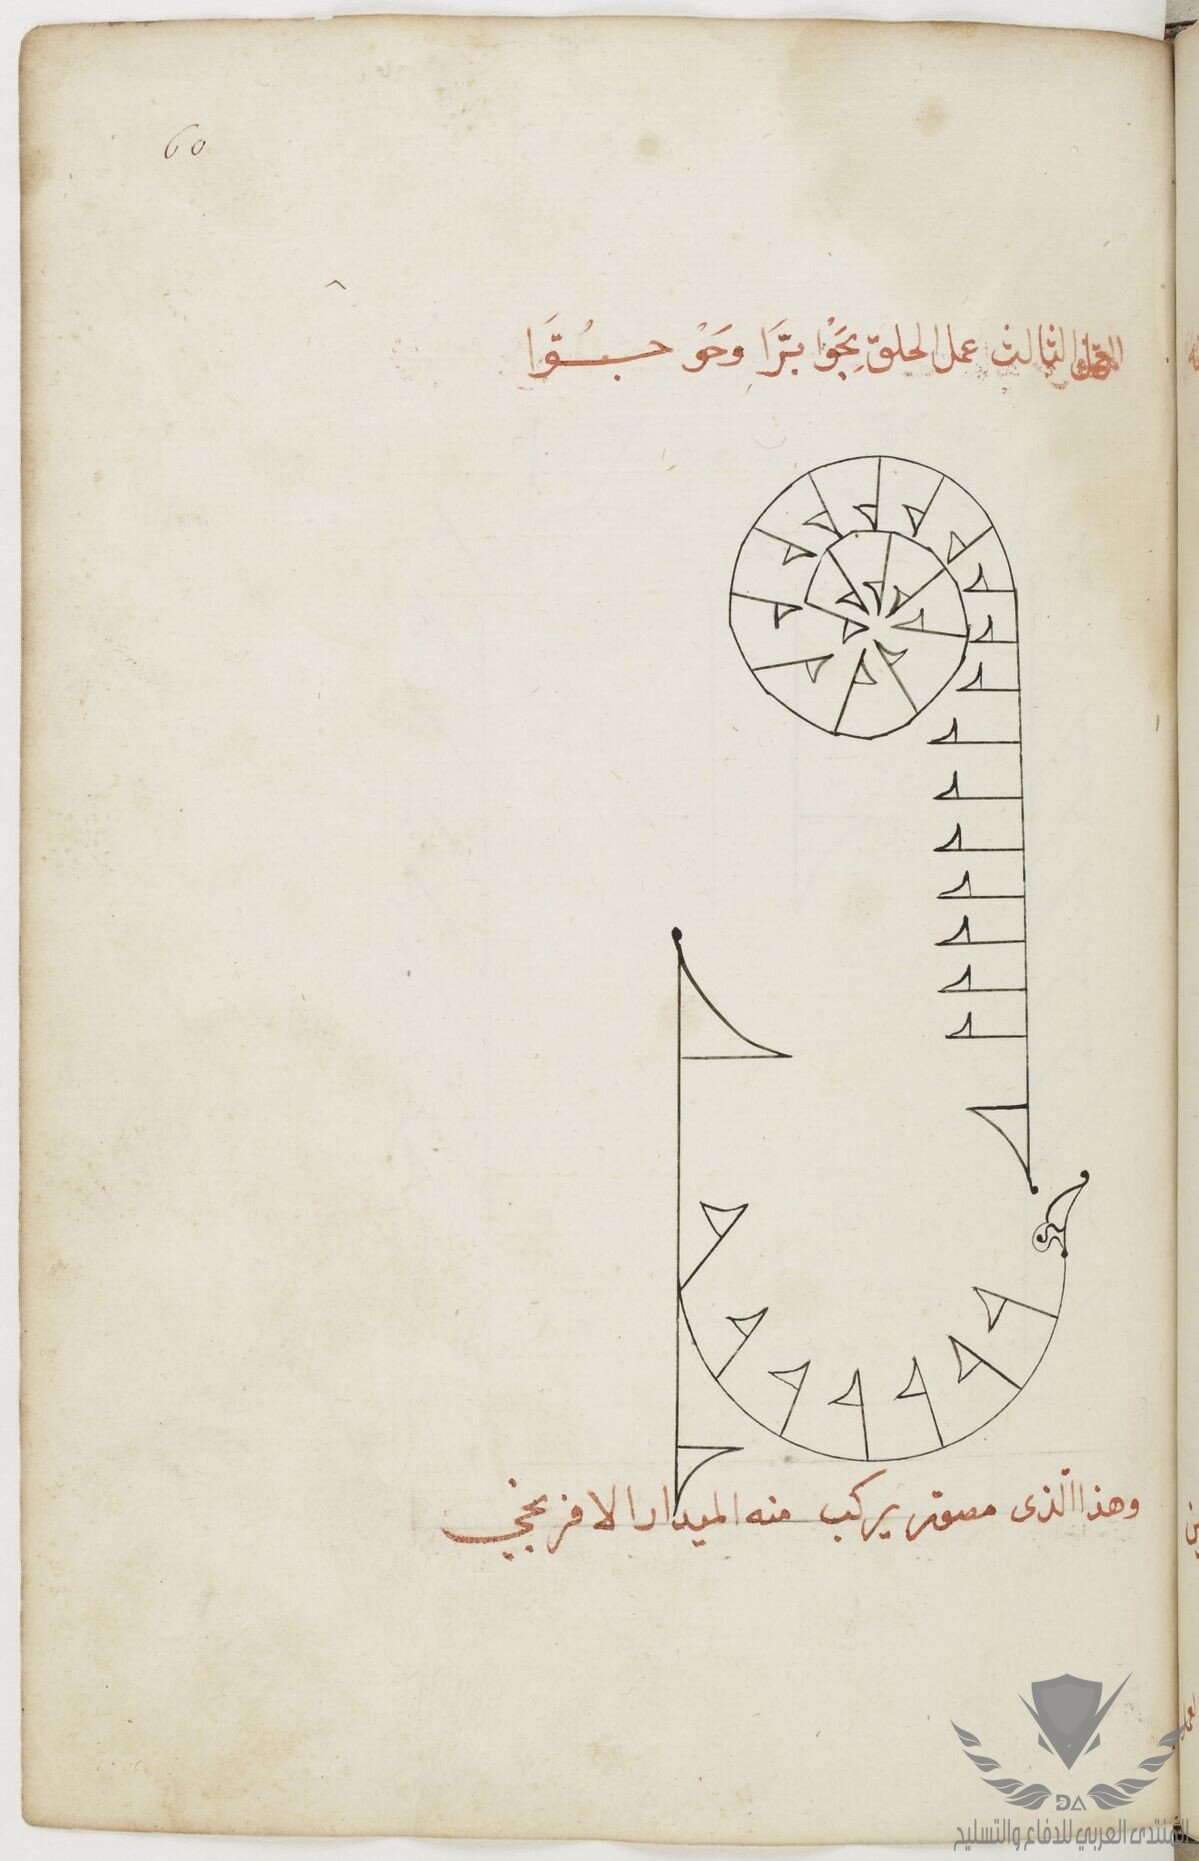 60
الثالث عمل الحلق بجوا برّا وجو
وهذا الّذى مصوّر يركب منه الميدان الافرنجي
ﺍﻟﻤﻨﺘﺪﻯ العربي للدفاع والتسليح
DA